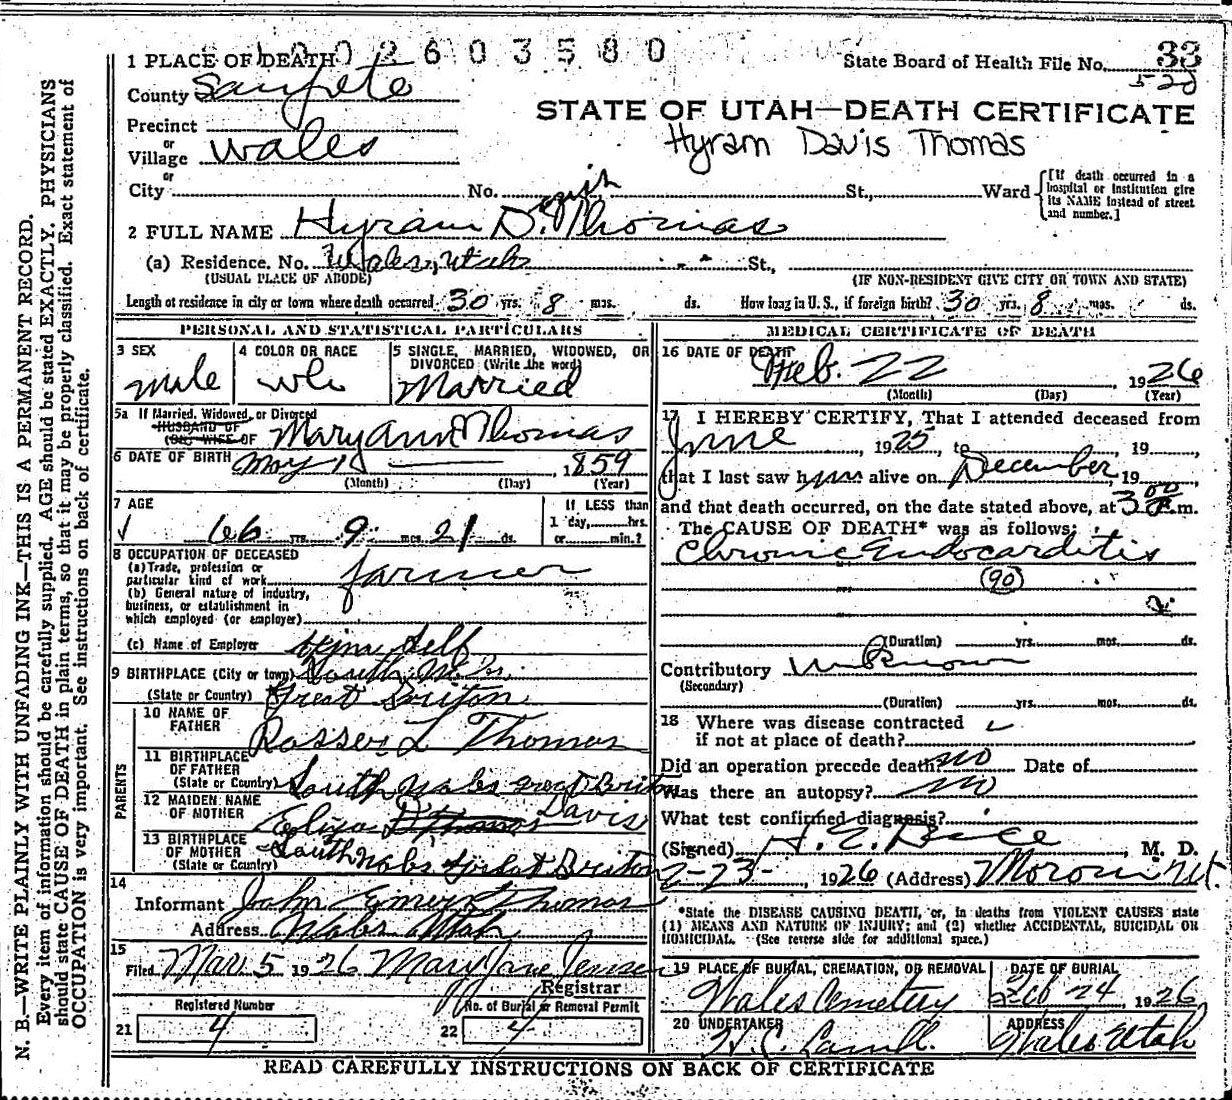 1 PLACE OF DEATH
2603580
State Board of Health File No. 33
520
County Sanpete
STATE OF UTAH—DEATH CERTIFICATE
Precinct
or
Village Wales
Hyram Davis Thomas
or
City No. St., Ward
[If death occurred in a hospital or institution give its NAME instead of street and number.]
2 FULL NAME Hyram D. Thomas
(a) Residence. No. Wales, Utah St.,
(USUAL PLACE OF ABODE) (IF NON-RESIDENT GIVE CITY OR TOWN AND STATE)
Length of residence in city or town where death occurred 30 yrs. 8 mos. ds. How long in U. S., if foreign birth? 30 yrs. 8 mos. ds.
PERSONAL AND STATISTICAL PARTICULARS
3 SEX
male
4 COLOR OR RACE
wh
5 SINGLE, MARRIED, WIDOWED, OR DIVORCED (Write the word)
Married
5a If Married, Widowed, or Divorced
HUSBAND OF
(OR) WIFE OF Mary Ann Thomas
6 DATE OF BIRTH May 1 1859
(Month) (Day) (Year)
7 AGE
66 yrs. 9 mos. 21 ds.
If LESS than
1 day, hrs.
or min.?
8 OCCUPATION OF DECEASED
(a) Trade, profession or
particular kind of work farmer
(b) General nature of industry,
business, or establishment in
which employed (or employer)
(c) Name of Employer Self
9 BIRTHPLACE (City or town) South Wales
(State or Country) Great Briton
PARENTS
10 NAME OF
FATHER Rosser L Thomas
11 BIRTHPLACE
OF FATHER
(State or Country) South Wales Great Briton
12 MAIDEN NAME
OF MOTHER D Thomas Davis
13 BIRTHPLACE
OF MOTHER
(State or Country) South Wales Great Briton
14
Informant John Thomas
Address Wales Utah
15
Filed Mar. 5 1926 Mary Jane Jensen
Registrar
Registered Number
21 4
No. of Burial or Removal Permit
22 4
MEDICAL CERTIFICATE OF DEATH
16 DATE OF DEATH
Feb. 22, 1926
(Month) (Day) (Year)
17 I HEREBY CERTIFY, That I attended deceased from
June, 1925 to , 19 ,
that I last saw him alive on December, 19
and that death occurred, on the date stated above, at 3 00 P.m.
The CAUSE OF DEATH* was as follows:
Chronic Endocarditis
90
(Duration) yrs. mos. ds.
Contributory Unknown
(Secondary)
(Duration) yrs. mos. ds.
18 Where was disease contracted
if not at place of death?
Did an operation precede death? no Date of
Was there an autopsy? no
What test confirmed diagnosis?
(Signed) H. E. Rice, M. D.
2-23- 1926 (Address) Moroni Ut.
*State the DISEASE CAUSING DEATH, or, in deaths from VIOLENT CAUSES state
(1) MEANS AND NATURE OF INJURY; and (2) whether ACCIDENTAL, SUICIDAL OR
HOMICIDAL. (See reverse side for additional space.)
19 PLACE OF BURIAL, CREMATION, OR REMOVAL
Wales Cemetery
DATE OF BURIAL
Feb 24, 1926
20 UNDERTAKER
H. C. Lamb.
ADDRESS
Wales Utah
READ CAREFULLY INSTRUCTIONS ON BACK OF CERTIFICATE
N. B.—WRITE PLAINLY WITH UNFADING INK—THIS IS A PERMANENT RECORD.
Every item of information should be carefully supplied. AGE should be stated EXACTLY. PHYSICIANS
should state CAUSE OF DEATH in plain terms, so that it may be properly classified. Exact statement of
OCCUPATION is very important. See instructions on back of certificate.